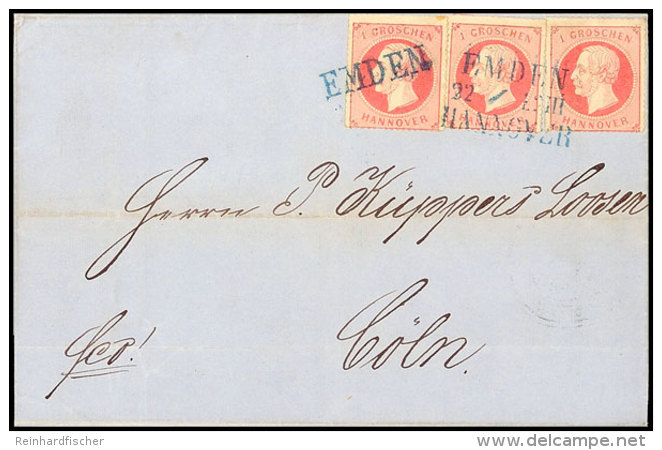 1 GROSCHEN
HANNOVER
1 GROSCHEN
1 GROSCHEN
HANNOVER
EMDEN
EMDEN
22
HANNOVER
Herrn P. Küppers Loosen
Cöln.
fco!
Reinhardfischer
delcampe.net